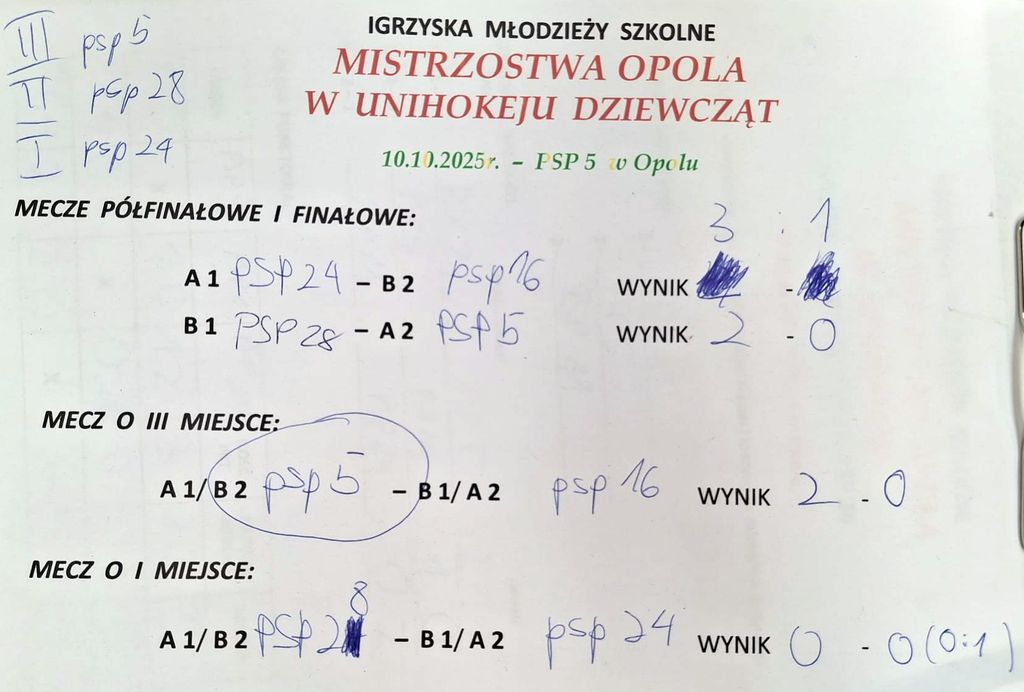 III psp 5
II psp 28
I psp 24
IGRZYSKA MŁODZIEŻY SZKOLNE
MISTRZOSTWA OPOLA
W UNIHOKEJU DZIEWCZĄT
10.10.2025r. – PSP 5 w Opolu
MECZE PÓŁFINAŁOWE I FINAŁOWE:
3 : 1
A 1 PSP 24 – B 2 psp 16 WYNIK -
B 1 PSP 28 – A 2 PSP 5 WYNIK 2 - 0
MECZ O III MIEJSCE:
A 1/ B 2 psp 5 – B 1/ A 2 psp 16 WYNIK 2 - 0
MECZ O I MIEJSCE:
A 1/ B 2 PSP 28 – B 1/ A 2 psp 24 WYNIK 0 - 0 (0:1)